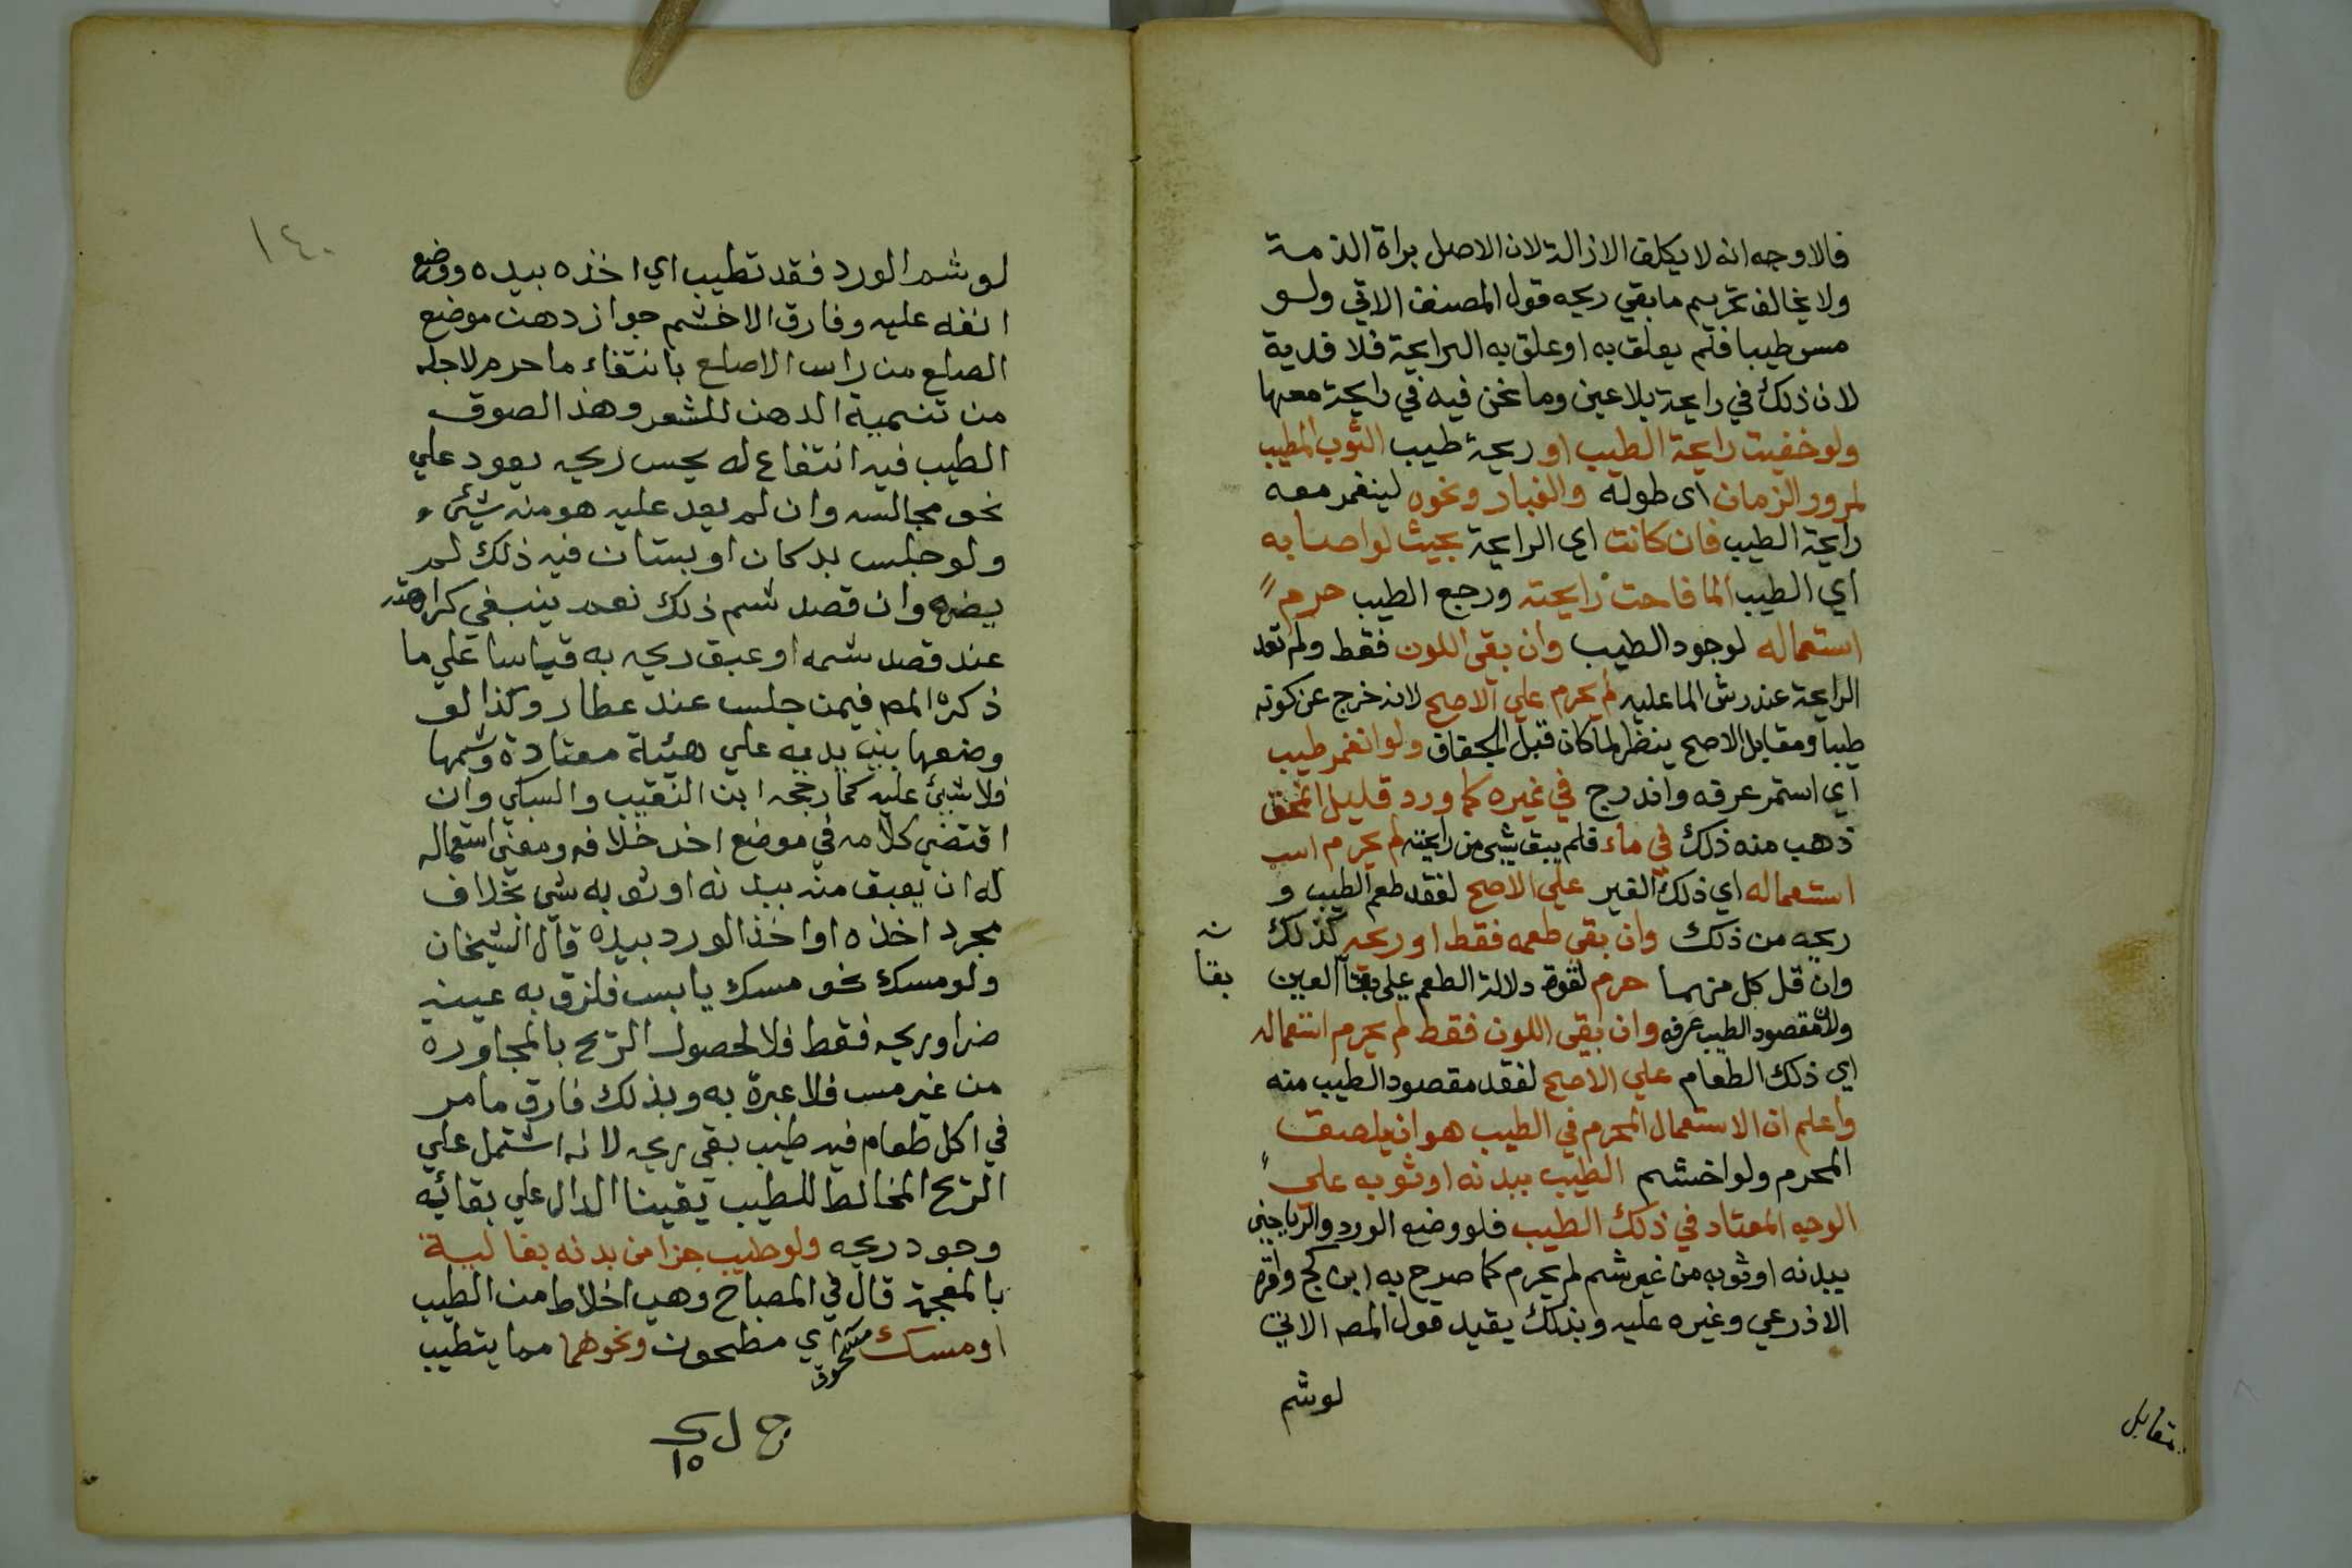 فالاوجه انه لا يكلف الازالة لان الاصل براة الذمة
ولا يخالف تحريم ما بقي ريحه قول المصنف الاتي ولو
مس طيبا فلم يعلق به او علق به الرايحة فلا فدية
لان ذلك في رايحة بلا عين وما نحن فيه في رايحة معها
ولو خفيت رايحة الطيب او ريحة طيب الثوب المطيب
لمرور الزمان اى طوله والغبار ونحوه لينغمر معه
رايحة الطيب فان كانت اي الرايحة بحيث لو اصابه
اي الطيب الما فاحت رايحته ورجع الطيب حرم
استعماله لوجود الطيب وان بقى اللون فقط ولم تعد
الرايحة عند رش الما عليه لم يحرم علي الاصح لانه خرج عن كونه
طيبا ومقابل الاصح ينظر لما كان قبل الجفاف ولو انغمر طيب
اي استمر عرفه واندرج في غيره كما ورد قليل انمحق
ذهب منه ذلك في ماء فلم يبق شي من رايحته لم يحرم است
استعماله اي ذلك الغير علي الاصح لفقد طعم الطيب و
ريحه من ذلك وان بقي طعمه فقط او ريحه كذلك
وان قل كل منهما حرم لقوة دلالة الطعم على بقا العين
بقا
ولان مقصود الطيب عرفه وان بقى اللون فقط لم يحرم استعماله
اي ذلك الطعام علي الاصح لفقد مقصود الطيب منه
واعلم ان الاستعمال المحرم في الطيب هو ان يلصق
المحرم ولو اخشم الطيب ببدنه او ثوبه علي
الوجه المعتاد في ذلك الطيب فلو وضع الورد والرياحين
ببدنه او ثوبه من غير شم لم يحرم كما صرح به ابن كج واقره
الاذرعي وغيره عليه وبذلك يقيد قول المصـ الاتي
لو شم
مقابل
١٤٠
لو شم الورد فقد تطيب اي اخذه بيده ووضع
انفه عليه وفارق الاخشم جواز دهن موضع
الصلع من راس الاصلع بانتفاء ما حرم لاجله
من تنمية الدهن للشعر وهذا لصوق
الطيب فيه انتفاع له يحس ريحه يعود علي
نحو مجالسه وان لم يعد عليه هو منه شيئ و
ولو جلس بدكان او بستان فيه ذلك لم
يضره وان قصد شم ذلك نعم ينبغي كراهته
عند قصد شمه او عبق ريحه به قياسا علي ما
ذكره المص فيمن جلس عند عطار وكذا لو
وضعها بين يديه علي هيئة معتادة وشمها
فلا شيئ عليه كما رجحه ابن النقيب والسبكي وان
اقتضي كلامه في موضع اخر خلافه ومعنى استعماله
له ان يعبق منه ببدنه او ثوبه شي بخلاف
مجرد اخذه او اخذ الورد بيده قال الشيخان
ولو مسك نحو مسك يابس فلزق به عينه
ضر او ريحه فقط فلا لحصول الريح بالمجاورة
من غير مس فلا عبرة به وبذلك فارق ما مر
في اكل طعام فيه طيب بقي ريحه لانه اشتمل علي
الريح المخالط للطيب يقينا الدال علي بقائه
وجود ريحه ولو طيب جزا من بدنه بغالية
بالمعجمة قال في المصباح وهي اخلاط من الطيب
او مسك مسحوق اي مطحون ونحوهما مما يتطيب